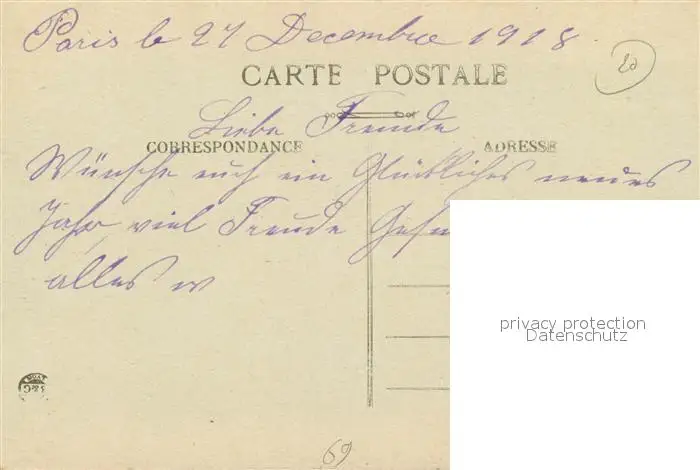 Paris le 27 Decembre 1918
CARTE POSTALE
20
Liebe Freunde
CORRESPONDANCE ADRESSE
Wünsche euch ein Glückliches neues
Jahr, viel Freude
alles
privacy protection
Datenschutz
69